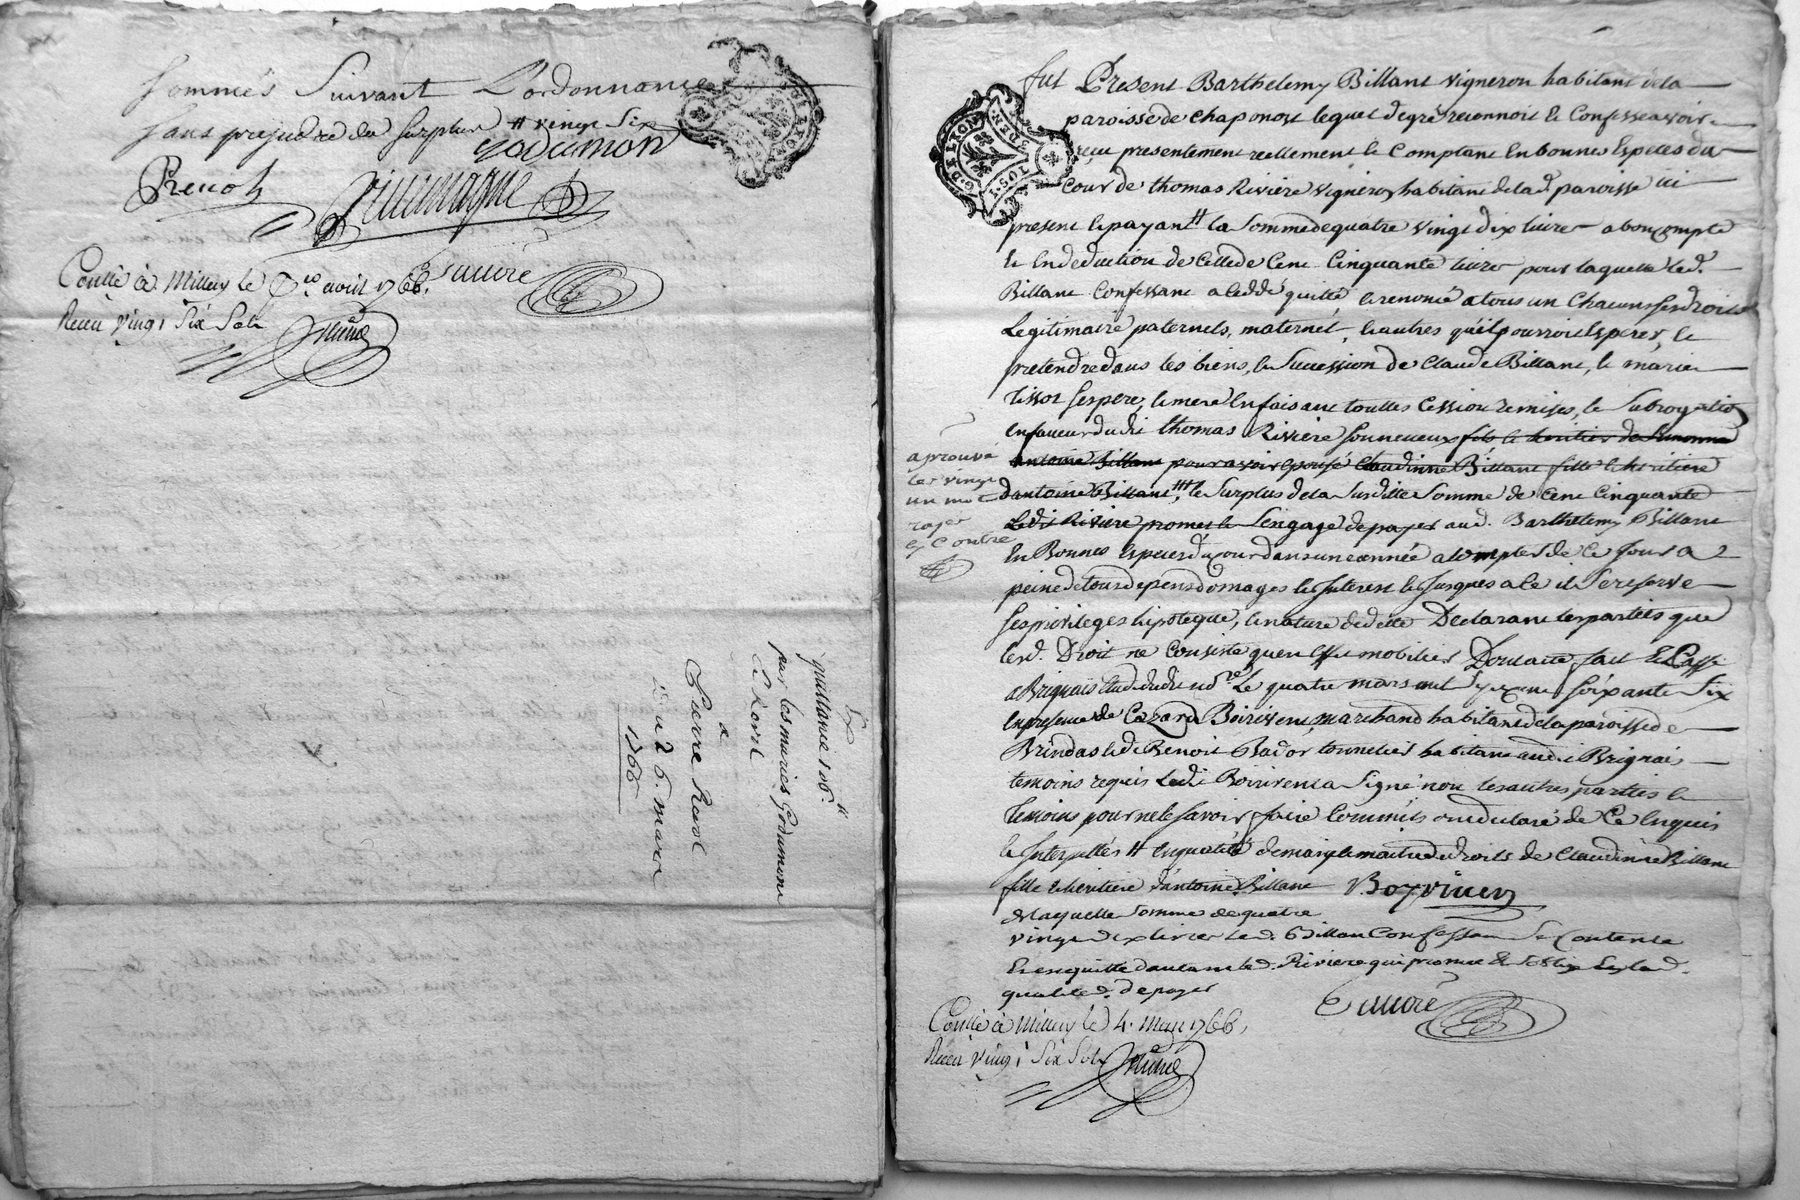 sommés Suivant L'ordonnance
sans prejudice du surplus # vingt six
Godumon
Prenoh
Guillmagne
Conllé à Millery le avril 1766. Cuvoré
Receu vingt Six Sols
quittance 106.tt
par les mariés Godumons
& Ravel
a
Pierre Ravel
du 26. mars
1766
G. DE LYON
fut Present Barthelemy Billant vigneron habitant de la
paroisse de chaponost lequel de gré reconnoit & Confesse avoir
reçu presentement reellement & Comptant en bonnes Especes du
Cour de thomas Riviere vigneron habitant de lad. paroisse ici
present & payant # la Somme de quatre vingt dix livres a bon compte
& En deduction de Celle de Cent Cinquante livres pour laquelle led.
Billant Confessant a cedde quitté & renoncé a tous un Chacuns ses droits
Legitimaire paternels, maternel, & autres qu'il pourroit Esperer, &
pretendre dans les biens, & Sucession de Claude Billant, & marie
tissot ses pere, & mere En faisant touttes Cession remises, & Subrogation
en faveur dudit thomas Riviere son neveux fils & heritier de Simonne
antoine Billant pour avoir épousé Claudinne Billant fille & heritiere
d'antoine Billant, ### & le Surplus de la Susditte Somme de Cent Cinquante
Ledit Riviere promet & S'engage de payer aud. Barthelemy Billant
En Bonnes Especes du jour dans une année a compter de Ce Jour a
peine de tous depens domages & Interest & Jusques a ce il Se reserve
Ses privileges hipoteque, & nature de dette Declarant les parties que
lesd. Droit ne Consiste qu'en Effet mobilier Dont acte fait & Passé
a Brignais Etude dud. no.re Le quatre mars mil sept cent soixante Six
En presence de Boiriven, marchand habitant de la paroisse de
Brindas & de Benoit Bador tonnelier habitant audit Brignais
temoins requis Ledit Boiriven a Signé non les autres parties &
temoins pour ne le savoir faire Commils ont declaré de Ce Enquis
& Interpellés # En qualité de mary & maitre des droits de Claudinne Billant
fille & heritiere d'antoine Billant Boyriven
de laquelle Somme de quatre
vingt dix livres led. Billant Confessant Se Contente
& en quitte d'autant led. Riviere qui promet & S'oblige Esd.
qualité d. de payer
Cuvoré
aprouvé
les vingt
un mot
rayes
cy Contre
Conllé à Millery le 4. Mars 1766,
Receu vingt Six Sols